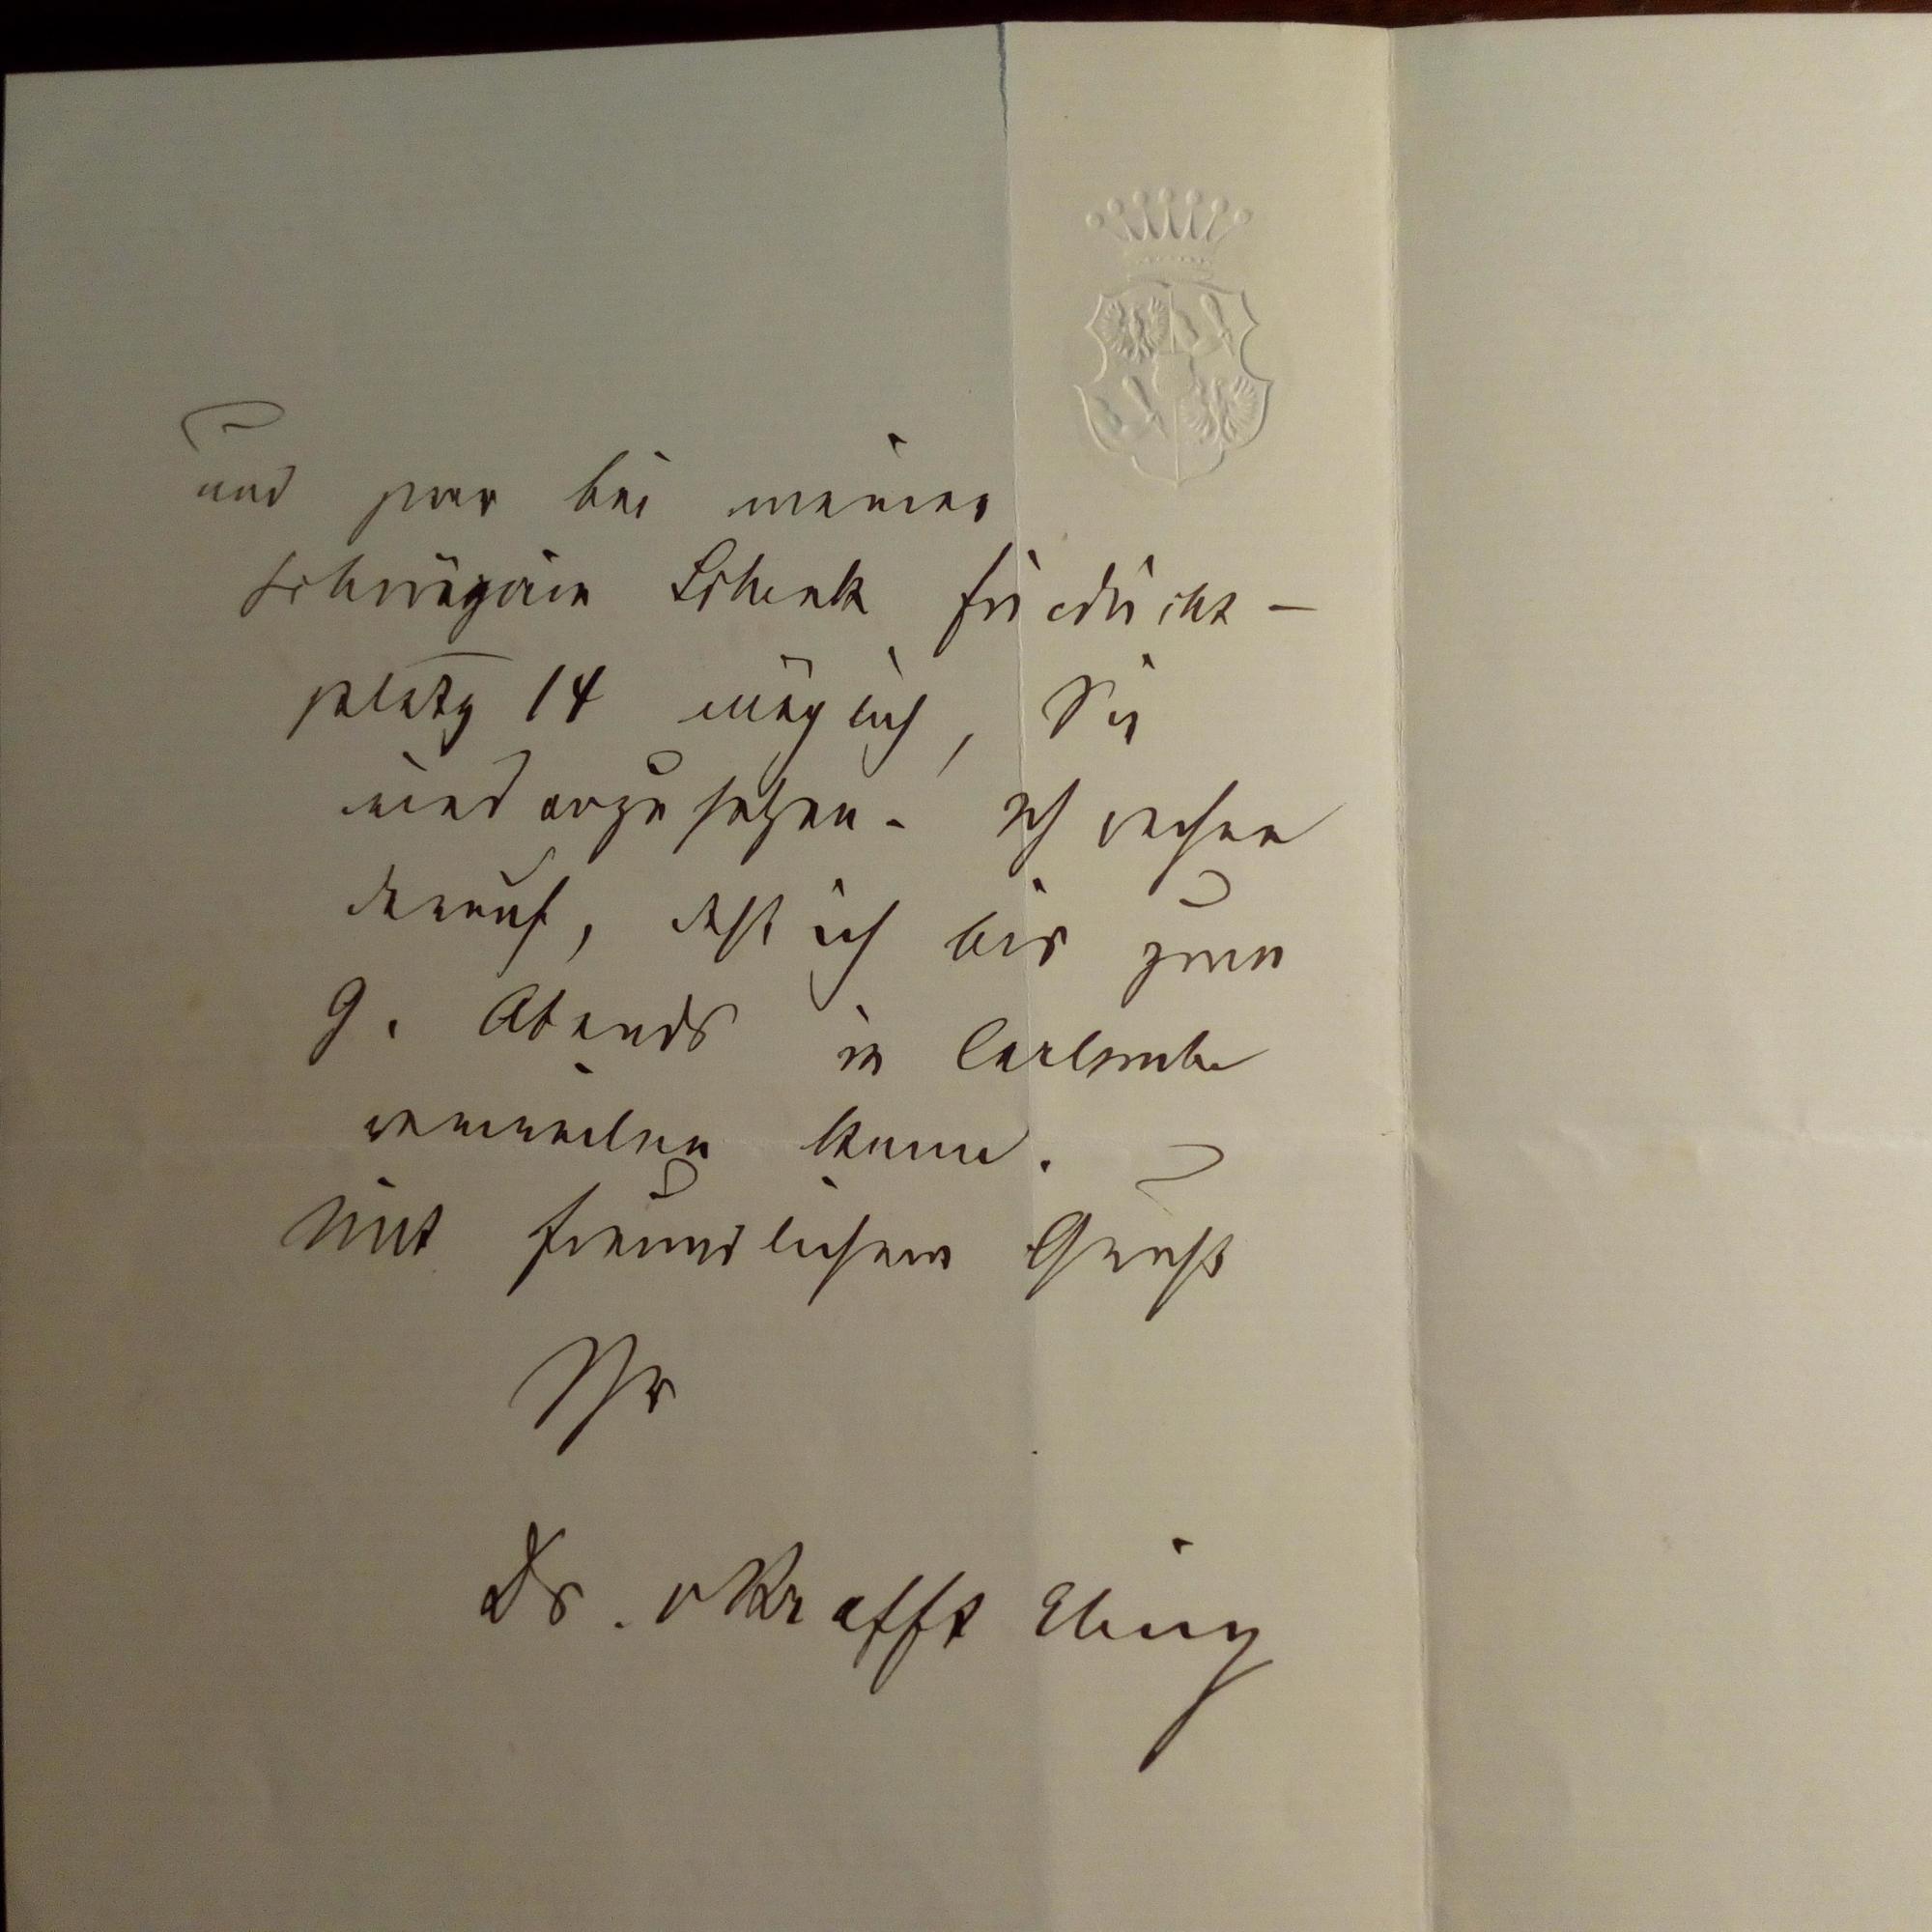 und zwar bei meiner
Schwägerin Schenk Friedrichs-
platz 14 möglich, Sie
wiederzusehen. Ich rechne
darauf, daß ich bis zum
9. Abends in Carlsruhe
verweilen kann.
Mit freundlichem Gruß
Ihr
Dr. v Krafft Ebing